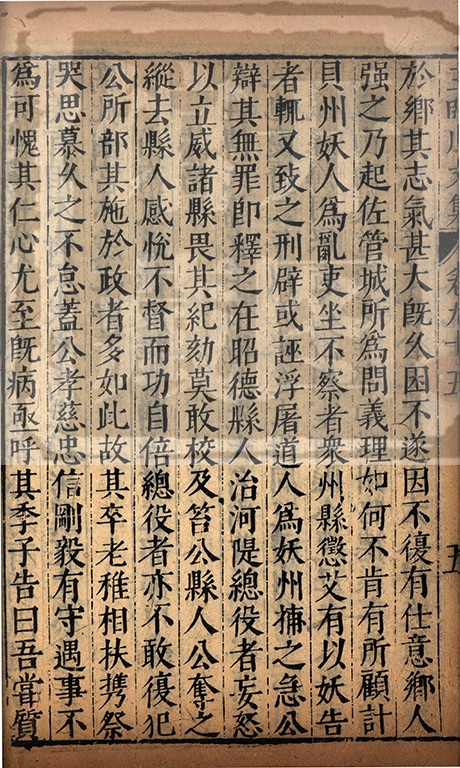 王臨川文集 卷九十五 五
於鄉其志氣甚大旣久困不遂因不復有仕意鄉人
强之乃起佐管城所爲問義理如何不肯有所顧計
貝州妖人爲亂吏坐不察者衆州縣懲艾有以妖告
者輒又致之刑辟或誣浮屠道人爲妖州捕之急公
辯其無罪卽釋之在昭德縣人治河隄總役者妄怒
以立威諸縣畏其紀劾莫敢校及笞公縣人公奪之
縱去縣人感悅不督而功自倍總役者亦不敢復犯
公所部其施於政者多如此故其卒老稚相扶携祭
哭思慕久之不怠蓋公孝慈忠信剛毅有守遇事不
爲可愧其仁心尤至旣病亟呼其季子告曰吾嘗質